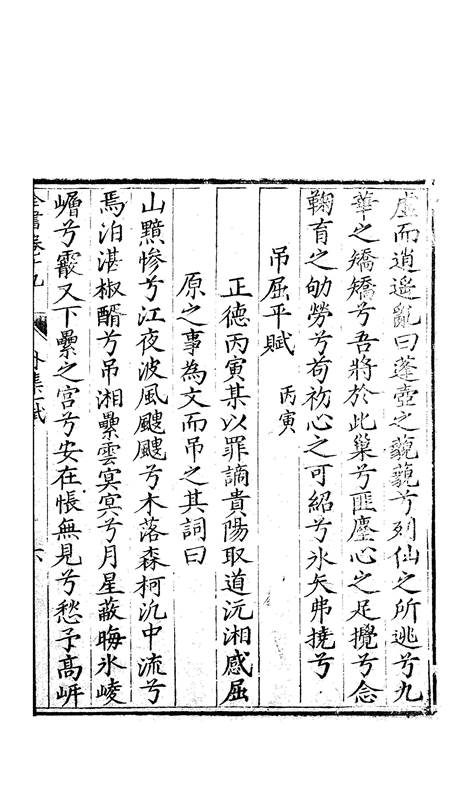 虛而逍遙亂曰蓬壺之藐藐兮列仙之所逃兮九
華之矯矯兮吾將於此巢兮匪塵心之足攪兮念
鞠育之劬勞兮苟初心之可紹兮永矢弗撓兮
吊屈平賦 丙寅
正德丙寅某以罪謫貴陽取道沅湘感屈
原之事為文而吊之其詞曰
山黯慘兮江夜波風颼颼兮木落森柯泛中流兮
焉泊湛椒醑兮吊湘纍雲冥冥兮月星蔽晦冰崚
嶒兮霰又下纍之宮兮安在悵無見兮愁予高岸
全書卷十九 外集一賦 六